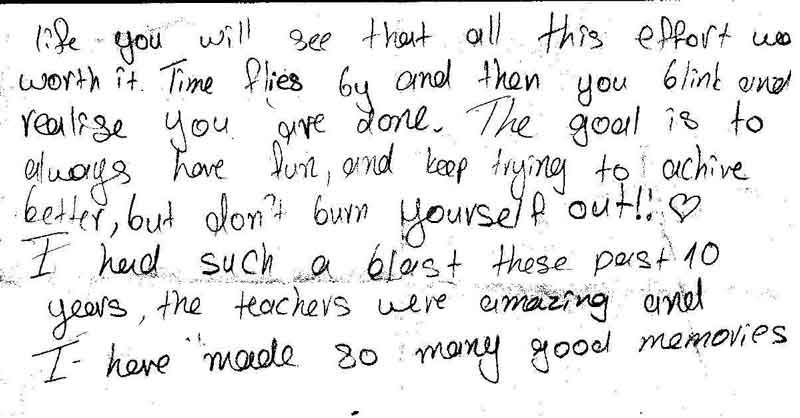 life you will see that all this effort was
worth it. Time flies by and then you blink and
realise you are done. The goal is to
always have fun, and keep trying to achive
better, but don't burn yourself out!! ♡
I had such a blast these past 10
years, the teachers were amazing and
I have made so many good memories